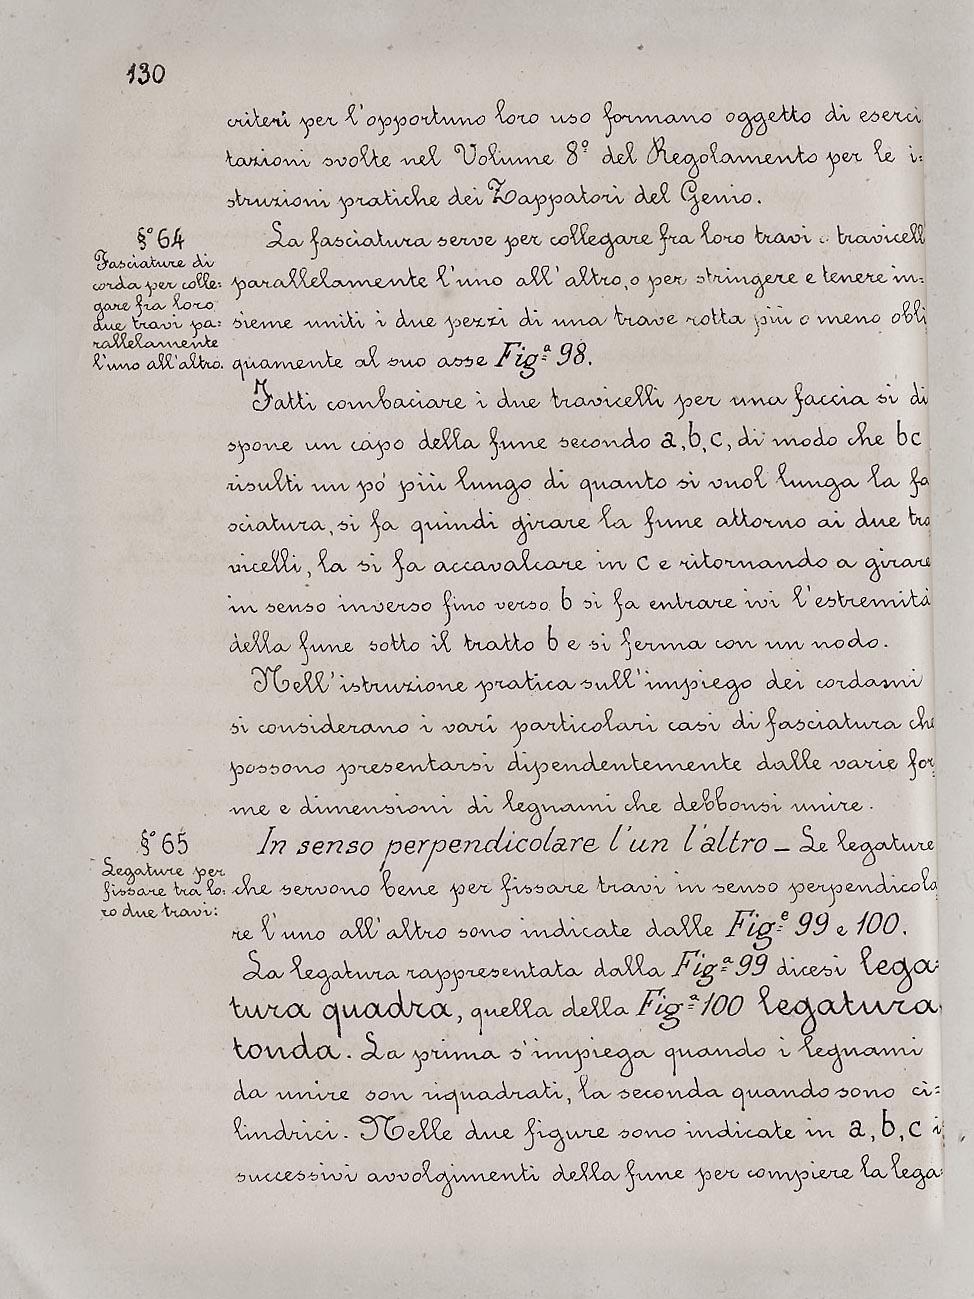 130
criterî per l'opportuno loro uso formano oggetto di eserci
tazioni svolte nel Volume 8º del Regolamento per le i=
struzioni pratiche dei Zappatori del Genio.
§º 64
Fasciature di
corda per colle=
gare fra loro
due travi pa=
rallelamente
l'uno all'altro.
La fasciatura serve per collegare fra loro travi o travicelli
parallelamente l'uno all'altro, o per stringere e tenere in=
sieme uniti i due pezzi di una trave rotta più o meno obli
quamente al suo asse Fig.ª 98.
Fatti combaciare i due travicelli per una faccia si di
spone un capo della fune secondo a, b, c, di modo che bc
risulti un pó più lungo di quanto si vuol lunga la fa
sciatura, si fa quindi girare la fune attorno ai due tra
vicelli, la si fa accavalcare in c e ritornando a girare
in senso inverso fino verso b si fa entrare ivi l'estremità
della fune sotto il tratto b e si ferma con un nodo.
Nell'istruzione pratica sull'impiego dei cordami
si considerano i varî particolari casi di fasciatura che
possono presentarsi dipendentemente dalle varie for
me e dimensioni di legnami che debbonsi unire.
§º 65
Legature per
fissare tra lo=
ro due travi:
In senso perpendicolare l'un l'altro – Le legature
che servono bene per fissare travi in senso perpendicola
re l'uno all'altro sono indicate dalle Fig.e 99 e 100.
La legatura rappresentata dalla Fig.ª 99 dicesi lega=
tura quadra, quella della Fig.ª 100 legatura
tonda. La prima s'impiega quando i legnami
da unire son riquadrati, la seconda quando sono ci=
lindrici. Nelle due figure sono indicate in a, b, c i
successivi avvolgimenti della fune per compiere la lega